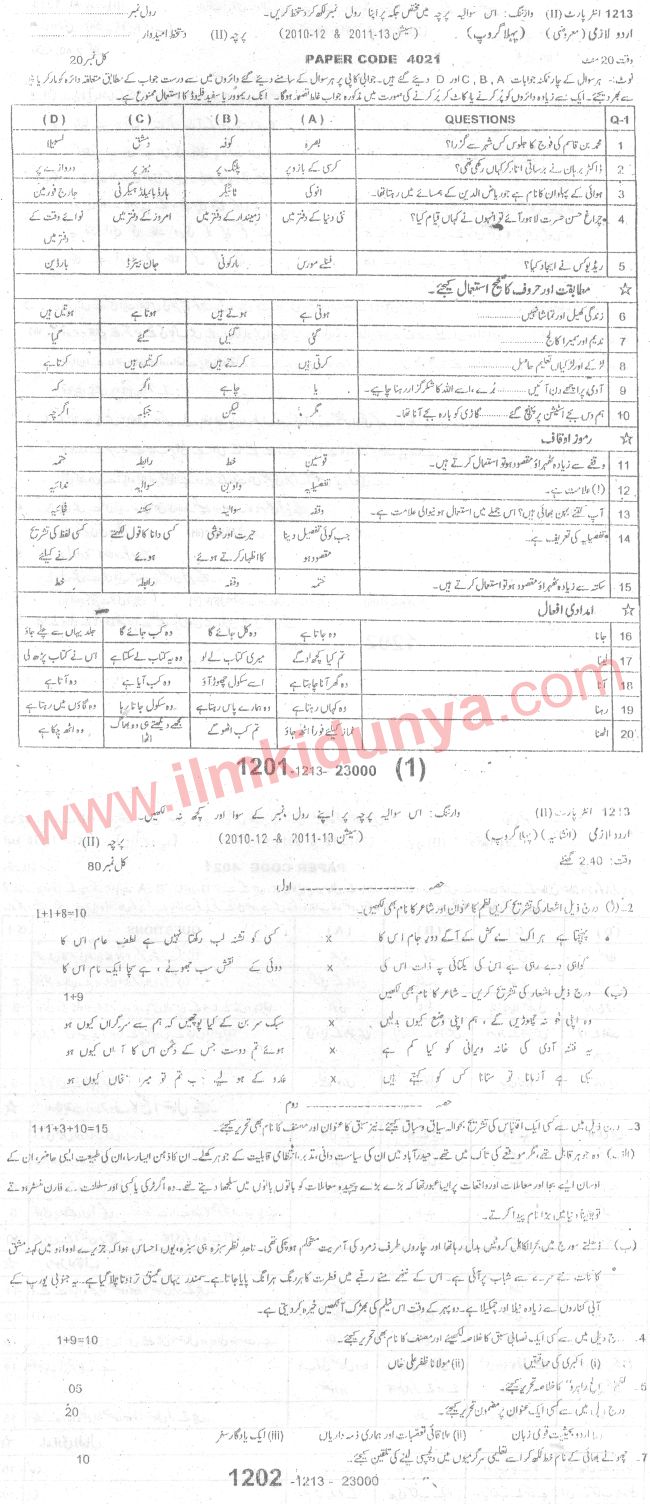 1213 انٹر پارٹ (II) وارننگ: اس سوالیہ پرچہ میں مختص جگہ پر اپنا رول نمبر لکھ کر دستخط کریں۔ رول نمبر
اردو لازمی (معروضی) (پہلا گروپ) (سیشن 13-2011 & 12-2010) پرچہ (II) دستخط امیدوار
وقت 20 منٹ PAPER CODE 4021 کل نمبر 20
نوٹ:- ہر سوال کے چار ممکنہ جوابات A ,B ,C اور D دیئے گئے ہیں۔ جوابی کاپی پر ہر سوال کے سامنے دیئے گئے دائروں میں سے درست جواب کے مطابق متعلقہ دائرہ کو مارکر یا پن
سے بھر دیجئے۔ ایک سے زیادہ دائروں کو پُر کرنے یا کاٹ کر پُر کرنے کی صورت میں مذکورہ جواب غلط تصور ہوگا۔ انک ریموور یا سفید فلیوڈ کا استعمال ممنوع ہے۔
Q-1 QUESTIONS (A) (B) (C) (D)
1 محمد بن قاسم کی فوج کا جلوس کس شہر سے گزرا؟ بصرہ کوفہ دمشق لسبیلا
2 ڈاکٹر برہان نے برساتی اتار کر کہاں رکھی تھی؟ کرسی کے بازو پر پلنگ پر میز پر دروازے پر
3 ہوائی کے پہلوان کا نام ہے جو ریاض الدین کے ہمسائے میں رہتا تھا۔ انوکی ٹائیگر ہارڈ بائیلڈ ہیگرٹی جارج فورمین
4 چراغ حسن حسرت لاہور آئے تو انہوں نے کہاں قیام کیا؟ نئی دنیا کے دفتر میں زمیندار کے دفتر میں امروز کے دفتر میں نوائے وقت کے دفتر میں
5 ریڈیو کس نے ایجاد کیا؟ فیلے مورس مارکونی جان بیئرڈ بارڈین
☆ مطابقت اور حروف کا صحیح استعمال کیجئے۔
6 زندگی کھیل اور تماشا نہیں ہوتی ہے ہوتے ہیں ہوتا ہے ہوتیں ہیں
7 ندیم اور سمیرا کالج گئی گئیں گئے گیا
8 لڑکے اور لڑکیاں تعلیم حاصل کرتی ہیں کرتے ہیں کرتیں ہیں کرتا ہے
9 آدمی پر اچھے دن آئیں بُرے، اسے اللہ کا شکر گزار رہنا چاہیے۔ یا چاہے اگر کہ
10 ہم دس بجے اسٹیشن پر پہنچ گئے گاڑی کو بارہ بجے آنا تھا۔ مگر لیکن جبکہ اگرچہ
☆ رموز اوقاف
11 وقفے سے زیادہ ٹھہراؤ مقصود ہو تو استعمال کرتے ہیں۔ قوسین خط رابطہ ختمہ
12 (!) علامت ہے۔ تفصیلیہ واوین سوالیہ ندائیہ
13 آپ کتنے بہن بھائی ہیں؟ اس جملے میں استعمال ہونیوالی علامت ہے۔ وقفہ سوالیہ سکتہ فجائیہ
14 تفصیلیہ کی تعریف ہے۔ جب کوئی تفصیل دینا مقصود ہو حیرت اور خوشی کا اظہار کرتے ہوئے کسی دانا کا قول لکھتے ہوئے کسی لفظ کی تشریح کرنے کیلئے
15 سکتہ سے زیادہ ٹھہراؤ مقصود ہو تو استعمال کرتے ہیں۔ ختمہ وقفہ رابطہ خط
☆ امدادی افعال
16 جانا وہ جاتا ہے وہ کل جائے گا وہ کب جائے گا جلد یہاں سے چلے جاؤ
17 لینا تم کیا کچھ لو گے میری کتاب لے لو وہ یہ کتاب لے سکتا ہے اس نے کتاب پڑھ لی
18 آنا وہ گھر آنا چاہتا ہے اسے سکول چھوڑ آؤ وہ کب آیا ہے وہ آتا ہے
19 رہنا وہ کہاں رہتا ہے وہ ہمارے پاس رہتا ہے وہ سکول جاتا رہا وہ گاؤں میں رہتا ہے
20 اٹھنا نماز کیلئے فوراً اٹھ جاؤ تم کب اٹھو گے مجھے دیکھتے ہی وہ بھاگ اٹھا وہ اٹھ چکا ہے
1201 -1213- 23000 (1)
www.ilmkidunya.com
1213 انٹر پارٹ (II) وارننگ: اس سوالیہ پرچہ پر اپنے رول نمبر کے سوا اور کچھ نہ لکھیں۔
اردو لازمی (انشائیہ) (پہلا گروپ) (سیشن 13-2011 & 12-2010) پرچہ (II)
وقت: 2.40 گھنٹے کل نمبر 80
حصہ اول
2- (الف) درج ذیل اشعار کی تشریح کریں نظم کا عنوان اور شاعر کا نام بھی لکھیں۔ 1+1+8=10
پہنچتا ہے ہر اک مے کش کے آگے دور جام اس کا x کسی کو تشنہ لب رکھتا نہیں ہے لطف عام اس کا
گواہی دے رہی ہے اس کی یکتائی پہ ذات اس کی x دوئی کے نقش سب جھوٹے، ہے سچا ایک نام اس کا
(ب) درج ذیل اشعار کی تشریح کریں۔ شاعر کا نام بھی لکھیں 1+9
وہ اپنی خو نہ چھوڑیں گے، ہم اپنی وضع کیوں بدلیں x سبک سر بن کے کیا پوچھیں کہ ہم سے سرگراں کیوں ہو
یہ فتنہ آدمی کی خانہ ویرانی کو کیا کم ہے x ہوئے تم دوست جس کے دشمن اس کا آسماں کیوں ہو
یہی ہے آزمانا تو ستانا کس کو کہتے ہیں x عدو کے ہو لیے جب تم تو میرا امتحاں کیوں ہو
حصہ دوم
3- درج ذیل میں سے کسی ایک اقتباس کی تشریح بحوالہ سیاق و سباق کیجئے۔ نیز سبق کا عنوان اور مصنف کا نام بھی تحریر کیجئے۔ 1+1+3+10=15
(الف) وہ جوہر قابل تھے، مگر موقعے کی تاک میں تھے۔ حیدرآباد میں ان کی سیاست دانی، تدبر، انتظامی قابلیت کے جوہر کھلے۔ ان کا ذہن ایسا رسا، ان کی طبیعت ایسی حاضر، ان کے
اوسان ایسے بجا اور معاملات اور واقعات پر ایسا عبور تھا کہ بڑے بڑے پیچیدہ معاملات کو باتوں باتوں میں سلجھا دیتے تھے۔ وہ اگر ٹرکی یا کسی اور سلطنت کے فارن منسٹر ہوتے
تو یقیناً دنیا میں بڑا نام پیدا کرتے۔
(ب) ڈھلتے سورج میں بحرالکاہل کروٹیں بدل رہا تھا اور چاروں طرف زمرد کی آمریت مستحکم ہو چکی تھی۔ تاحد نظر سبزہ ہی سبزہ، یوں احساس ہوا کہ جزیرے اوواؤ میں کہنہ مشق
کائنات نئے سرے سے شباب پر آئی ہے۔ اس کے ننھے منے رقبے میں فطرت کا ہر رنگ ہر انگ پایا جاتا ہے۔ سمندر یہاں عمیق تر ہوتا چلا گیا ہے۔ یہ جنوبی یورپ کے
آبی کناروں سے زیادہ نیلا اور چمکیلا ہے۔ دوپہر کے وقت اس نیلم کی بھڑک آنکھیں خیرہ کر دیتی ہے۔
4- درج ذیل میں سے کسی ایک نصابی سبق کا خلاصہ لکھیئے اور مصنف کا نام بھی تحریر کیجئے۔ 1+9=10
(i) اکبری کی حماقتیں (ii) مولانا ظفر علی خاں
5- کا خلاصہ تحریر کیجئے۔ 05
درج ذیل میں سے کسی ایک عنوان پر مضمون تحریر کیجئے۔ 20
(i) اردو بحیثیت قومی زبان (ii) علاقائی تعصبات اور ہماری ذمہ داریاں (iii) ایک یادگار سفر
7- چھوٹے بھائی کے نام خط لکھ کر اسے تعلیمی سرگرمیوں میں دلچسپی لینے کی تلقین کیجئے۔ 10
1202 -1213- 23000